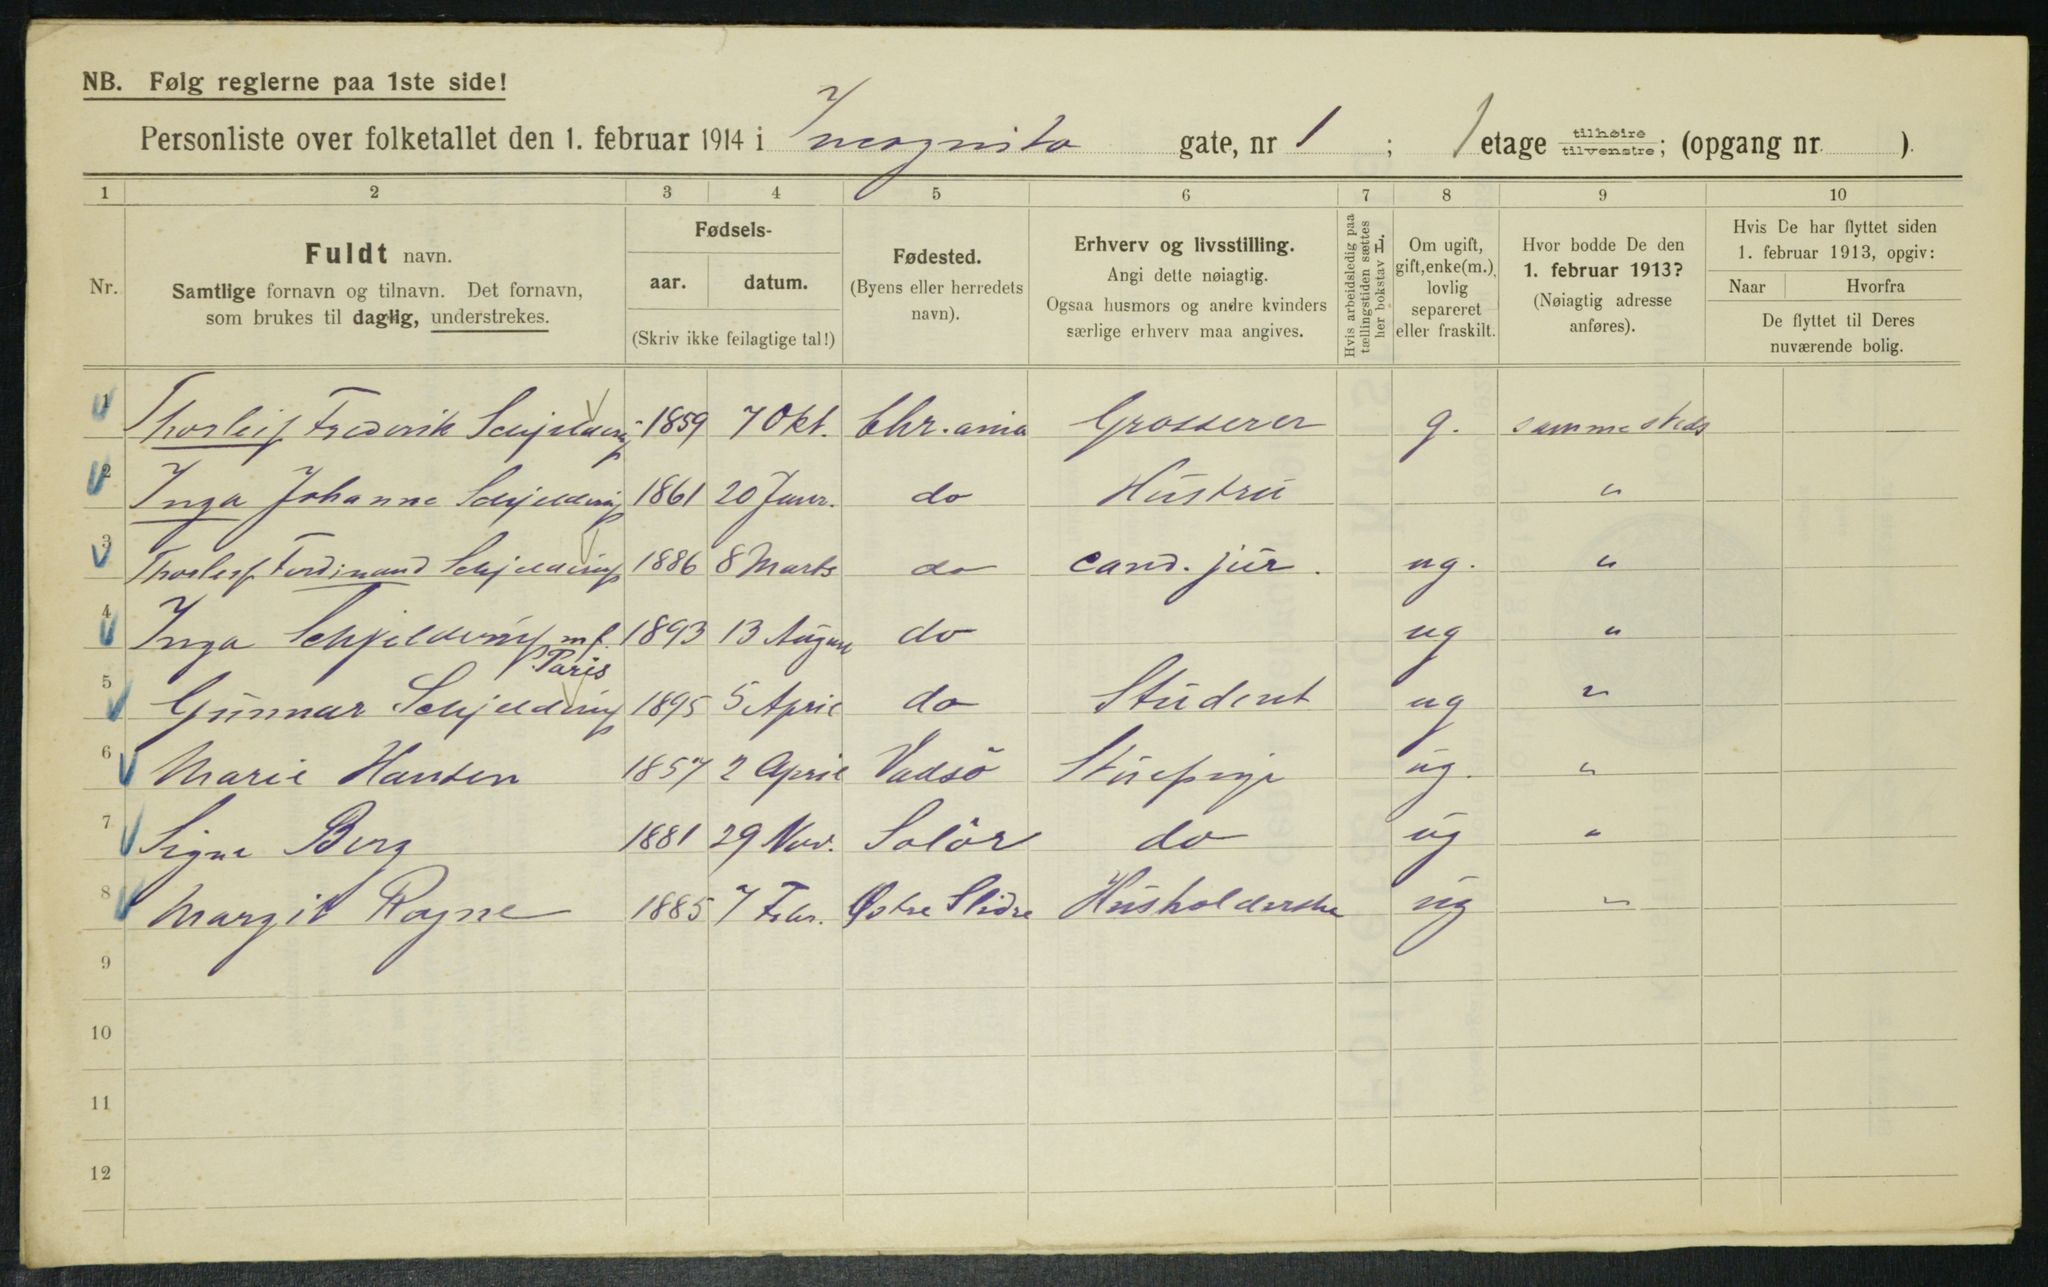 NB. Følg reglerne paa 1ste side!
Personliste over folketallet den 1. februar 1914 i Incognito gate, nr 1 ; 1 etage tilhøire tilvenstre; (opgang nr. ).
1 2 3 4 5 6 7 8 9 10
Nr.
Fuldt navn.
Samtlige fornavn og tilnavn. Det fornavn,
som brukes til daglig, understrekes.
Fødsels-
aar. datum.
(Skriv ikke feilagtige tal!)
Fødested.
(Byens eller herredets
navn).
Erhverv og livsstilling.
Angi dette nøiagtig.
Ogsaa husmors og andre kvinders
særlige erhverv maa angives.
Hvis arbeidsledig paa
tællingstiden sættes
her bokstav L.
Om ugift,
gift, enke(m.),
lovlig
separeret
eller fraskilt.
Hvor bodde De den
1. februar 1913?
(Nøiagtig adresse
anføres).
Hvis De har flyttet siden
1. februar 1913, opgiv:
Naar Hvorfra
De flyttet til Deres
nuværende bolig.
1 Thorleif Frederik Schjelderup 1859 7 Okt. Chr.ania Grosserer g. sammesteds
2 Inga Johanne Schjelderup 1861 20 Janr. do Hustru "
3 Thorleif Ferdinand Schjelderup 1886 8 Marts do cand. jur. ug. "
4 Inga Schjelderup m.f. 1893 13 August do ug "
Paris
5 Gunnar Schjelderup 1895 5 April do Student ug "
6 Marie Hansen 1857 2 April Vadsö Stuepige ug. "
7 Signe Berg 1881 29 Nov. Solör do ug "
8 Margit Rogne 1885 7 Febr. Østre Slidre Husholderske ug "
9
10
11
12